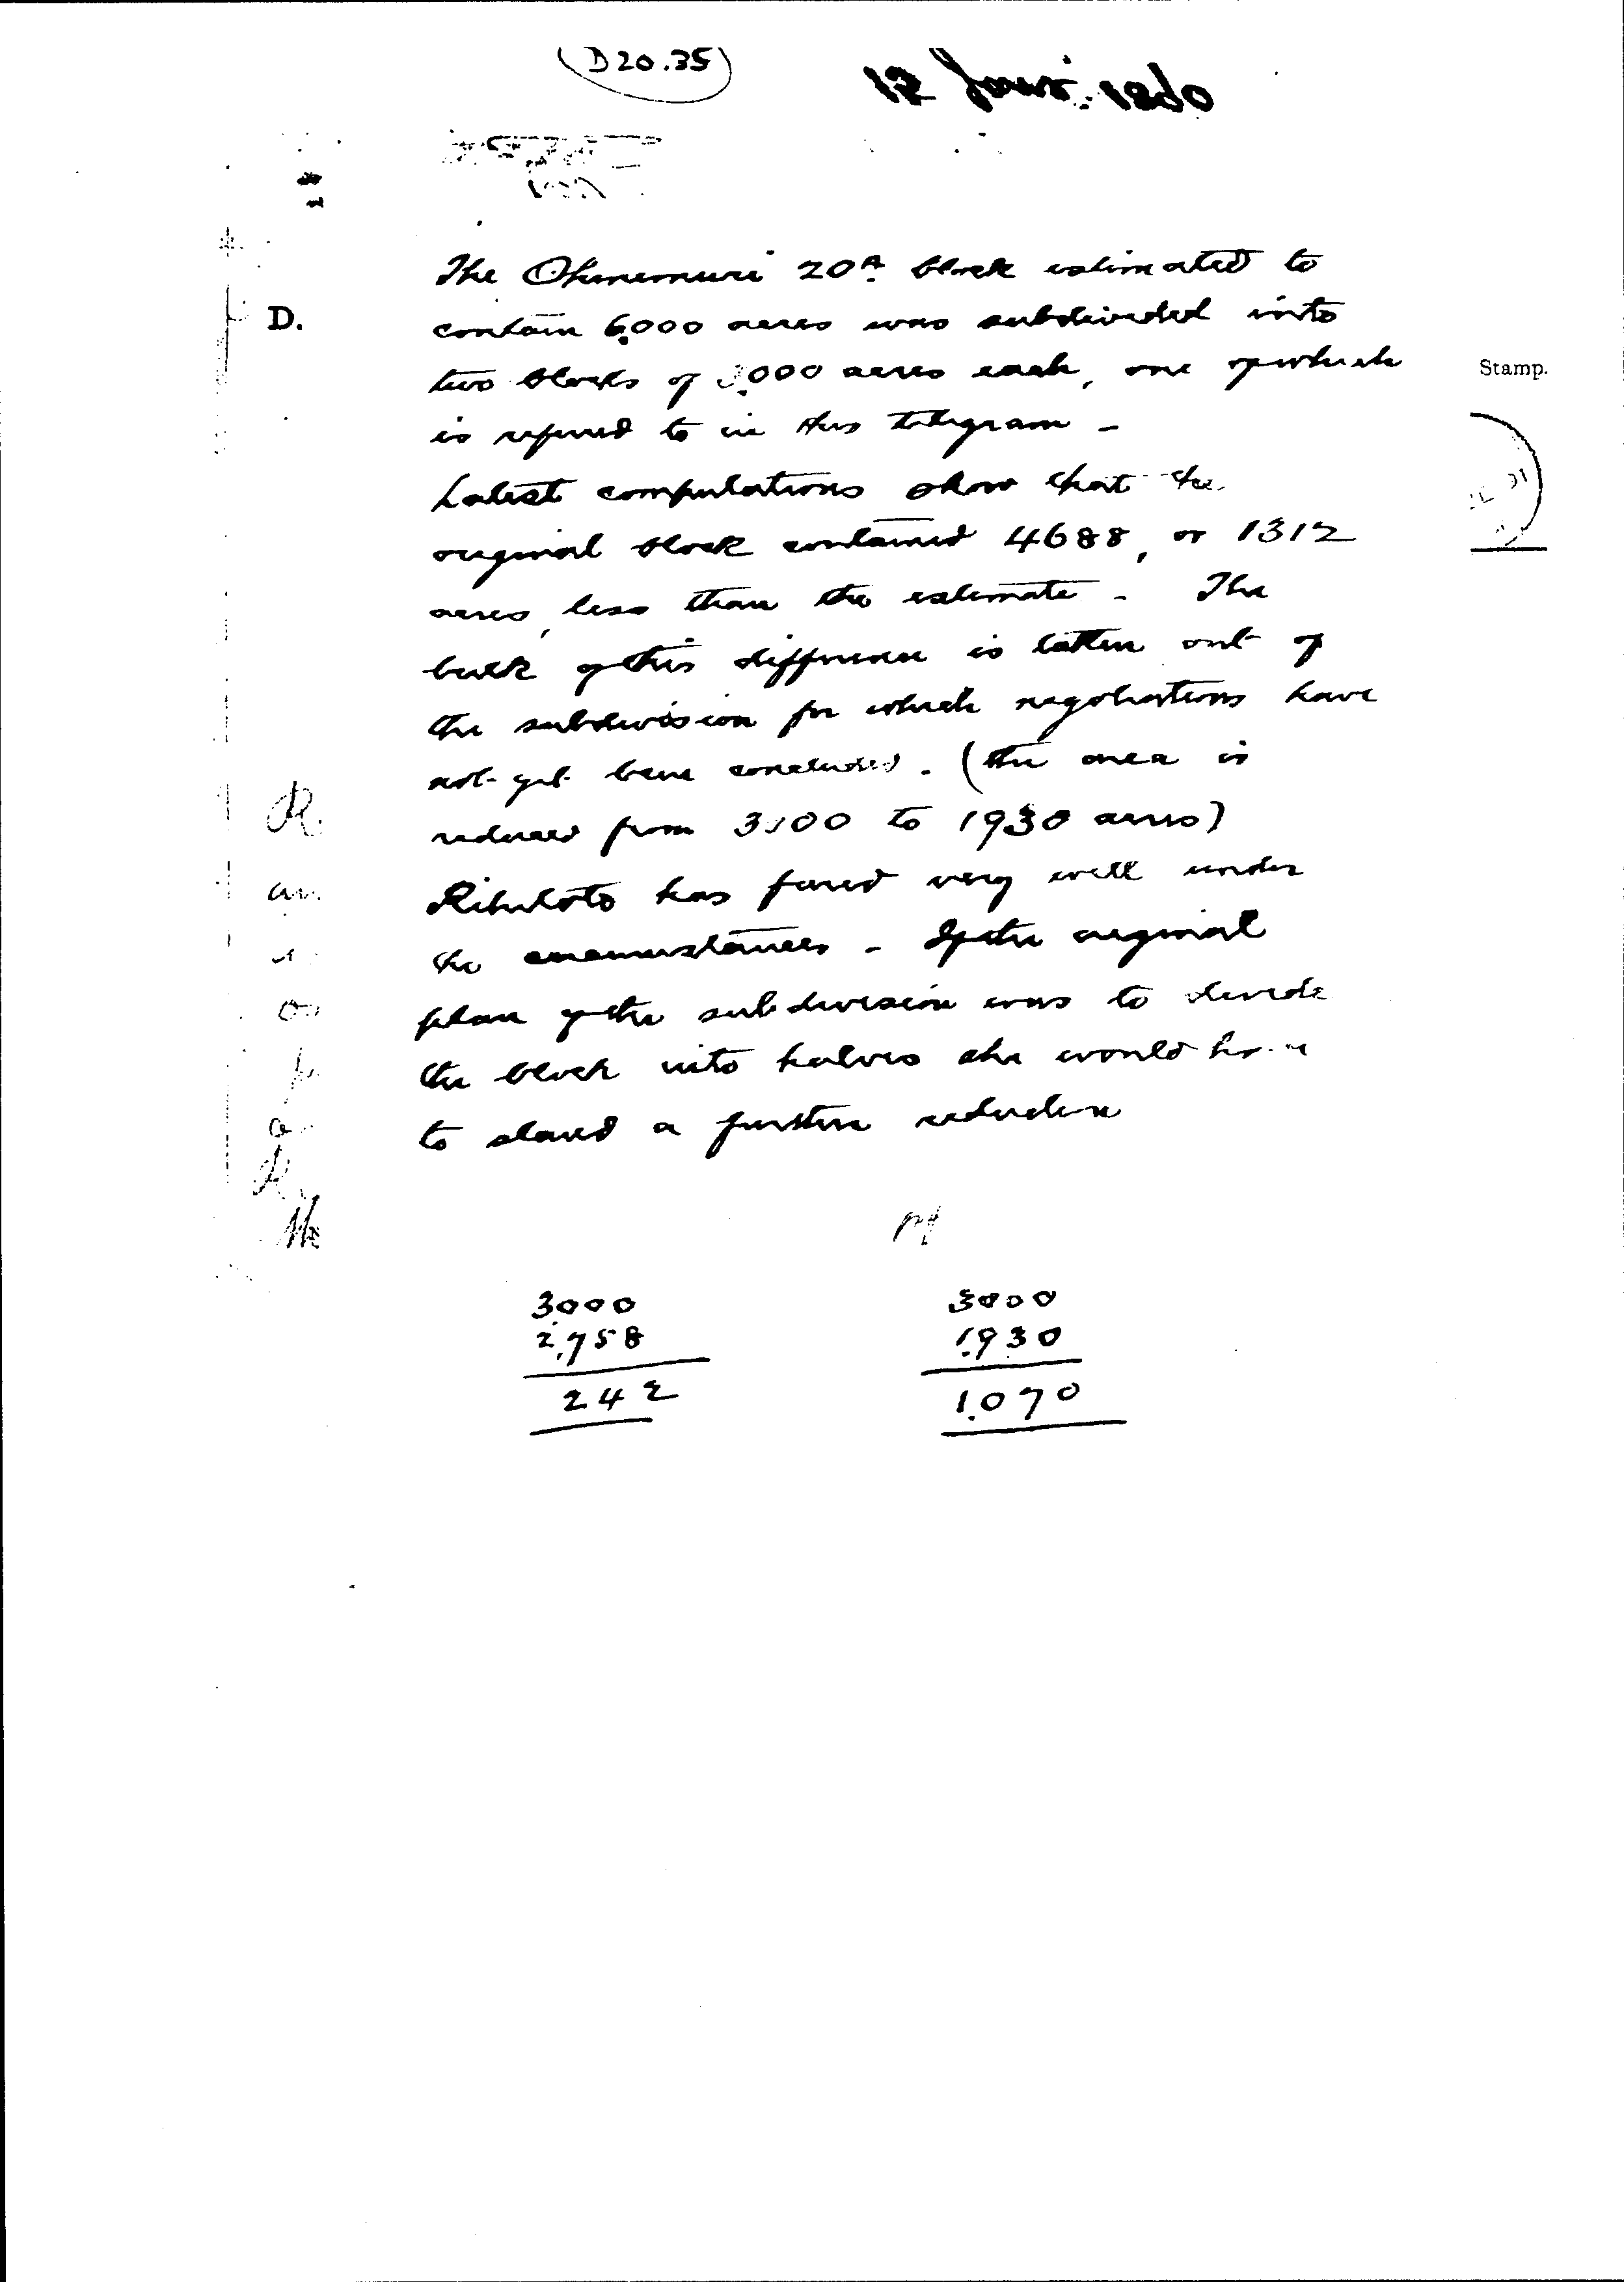 (D20.35)
12 Jany. 1880
The Ohinemuri 20A. block estimated to
D.
contain 6,000 acres was subdivided into
two blocks of 3,000 acres each, one of which
Stamp.
is referred to in this telegram -
Latest computations show that the
original block contained 4688, or 1312
acres, less than the estimate - The
bulk of this difference is taken out of
the subdivision for which negotiations have
not yet been concluded. (the area is
reduced from 3000 to 1930 acres)
has fared very well under
the circumstances - If the original
plan of the subdivision was to divide
the block into halves she would have
to stand a further reduction
3000
2,758
242
3000
1,930
1,070